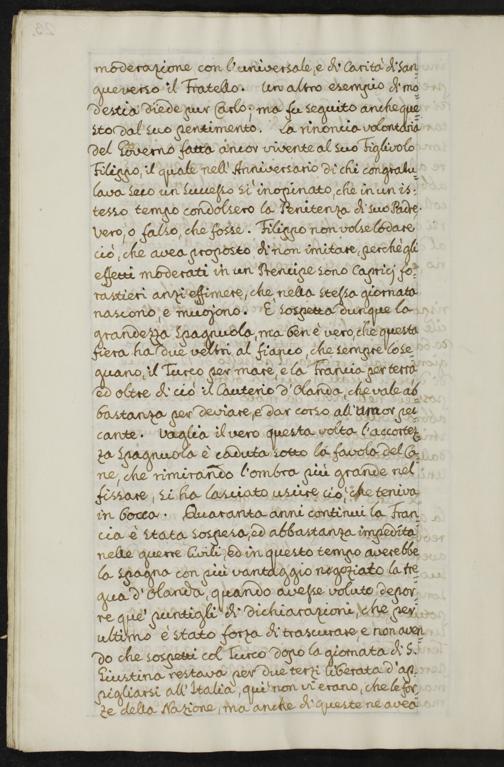 moderazione con l'universale, e di Carità di San=
gue verso il Fratello. Un altro esempio di mo=
destia diede pur Carlo, ma fu seguito anche que=
sto dal suo pentimento. La rinoncia volontaria
del Governo fatta ancor vivente al suo Figlivolo
Filippo, il quale nell'Anniversario di chi congratu=
lava seco un successo sì inopinato, che in un is=
tesso tempo condolsero la Penitenza di suo Padre,
vero, o falso, che fosse. Filippo non volse lodare
ciò, che avea proposto di non imitare, perchè gli
effetti moderati in un Prencipe sono Capricj fo=
rastieri anzi effimere, che nella stessa giornata
nascono, e muojono. È sospetta dunque la
grandezza Spagnuola, ma ben è vero che questa
fiera ha due veltri al fianco, che sempre lose=
guano, il Turco per mare, e la Francia per terra
ed oltre di ciò il Cauterio d'Olanda, che vale ab=
bastanza per deviare, e dar corso all'umor pec=
cante. Vaglia il vero questa volta l'accortez=
za Spagnuola è caduta sotto la favola del Ca=
ne, che rimirando l'ombra più grande nel
fissare, si ha lasciato uscire ciò, che teniva
in bocca. Quaranta anni continui la Fran=
cia è stata sospesa, ed abbastanza impedita
nelle guerre Civili, ed in questo tempo averebbe
la Spagna con più vantaggio negoziato la tre=
gua d'Olanda, quando avesse voluto depor=
re que' puntigli di dichiarazioni, che per
ultimo è stato forza di trascurare, e non aven=
do che sospetti col Turco dopo la giornata di S.
Giustina restava per due terzi liberata d'ap=
pigliarsi all'Italia, qui non vi erano, che le for=
ze della Nazione, ma anche di queste ne avea